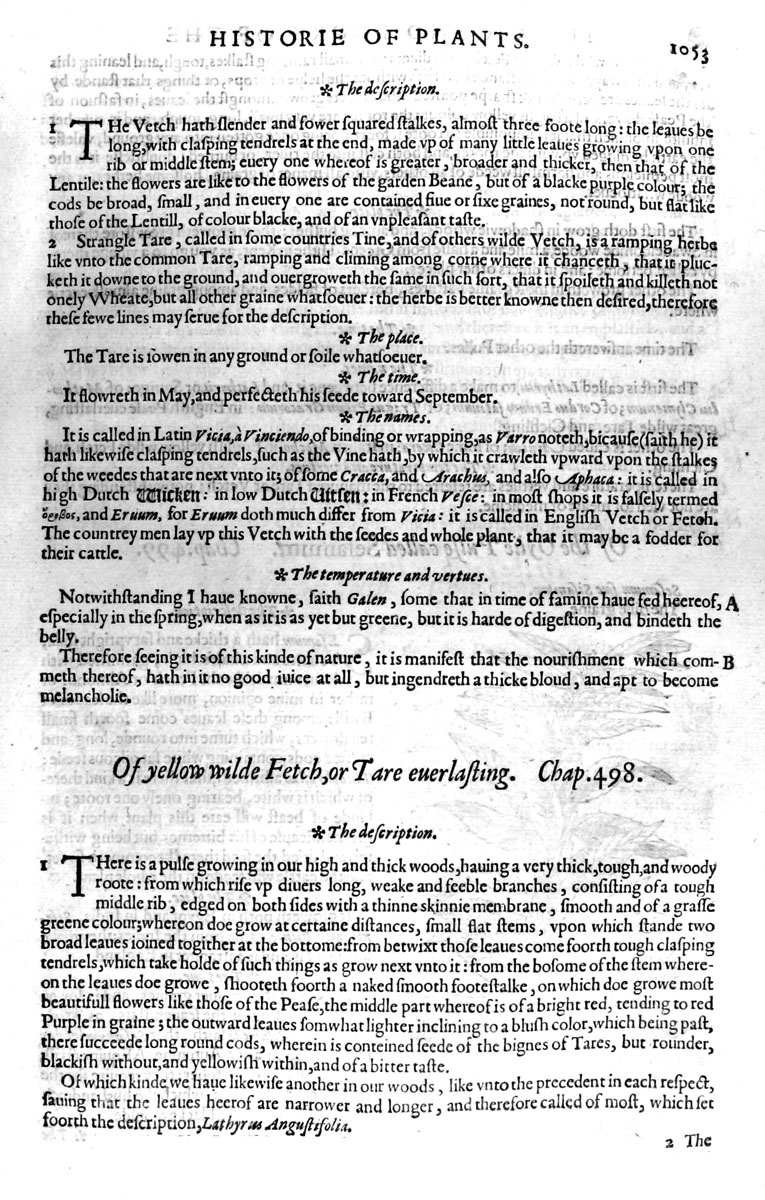 HISTORIE OF PLANTS.
1053
✲ The deſcription.
1 THe Vetch hath ſlender and fower ſquared ſtalkes, almoſt three foote long: the leaues be
long, with claſping tendrels at the end, made vp of many little leaues growing vpon one
rib or middle ſtem; euery one whereof is greater, broader and thicker, then that of the
Lentile: the flowers are like to the flowers of the garden Beane, but of a blacke purple colour; the
cods be broad, ſmall, and in euery one are contained fiue or ſixe graines, not round, but flat like
thoſe of the Lentill, of colour blacke, and of an vnpleaſant taſte.
2 Strangle Tare, called in ſome countries Tine, and of others wilde Vetch, is a ramping herbe
like vnto the common Tare, ramping and climing among corne where it chanceth, that it pluc-
keth it downe to the ground, and ouergroweth the ſame in ſuch ſort, that it ſpoileth and killeth not
onely Wheate, but all other graine whatſoeuer: the herbe is better knowne then deſired, therefore
theſe fewe lines may ſerue for the deſcription.
✲ The place.
The Tare is ſowen in any ground or ſoile whatſoeuer.
✲ The time.
It flowreth in May, and perfecteth his ſeede toward September.
✲ The names.
It is called in Latin Vicia, à Vinciendo, of binding or wrapping, as Varro noteth, bicauſe (ſaith he) it
hath likewiſe claſping tendrels, ſuch as the Vine hath, by which it crawleth vpward vpon the ſtalkes
of the weedes that are next vnto it; of ſome Cracca, and Arachus, and alſo Aphaca: it is called in
high Dutch Wicken: in low Dutch Uitſen: in French Veſce: in moſt ſhops it is falſely termed
ὄροβος, and Eruum, for Eruum doth much differ from Vicia: it is called in Engliſh Vetch or Fetch.
The countrey men lay vp this Vetch with the ſeedes and whole plant, that it may be a fodder for
their cattle.
✲ The temperature and vertues.
Notwithſtanding I haue knowne, ſaith Galen, ſome that in time of famine haue fed heereof, A
eſpecially in the ſpring, when as it is as yet but greene, but it is harde of digeſtion, and bindeth the
belly.
Therefore ſeeing it is of this kinde of nature, it is manifeſt that the nouriſhment which com- B
meth thereof, hath in it no good iuice at all, but ingendreth a thicke bloud, and apt to become
melancholie.
Of yellow wilde Fetch, or Tare euerlaſting. Chap. 498.
✲ The deſcription.
1 THere is a pulſe growing in our high and thick woods, hauing a very thick, tough, and woody
roote: from which riſe vp diuers long, weake and feeble branches, conſiſting of a tough
middle rib, edged on both ſides with a thinne skinnie membrane, ſmooth and of a graſſe
greene colour; whereon doe grow at certaine diſtances, ſmall flat ſtems, vpon which ſtande two
broad leaues ioined togither at the bottome: from betwixt thoſe leaues come foorth tough claſping
tendrels, which take holde of ſuch things as grow next vnto it: from the boſome of the ſtem where-
on the leaues doe growe, ſhooteth foorth a naked ſmooth footeſtalke, on which doe growe moſt
beautifull flowers like thoſe of the Peaſe, the middle part whereof is of a bright red, tending to red
Purple in graine; the outward leaues ſomwhat lighter inclining to a bluſh color, which being paſt,
there ſucceede long round cods, wherein is conteined ſeede of the bignes of Tares, but rounder,
blackiſh without, and yellowiſh within, and of a bitter taſte.
Of which kinde we haue likewiſe another in our woods, like vnto the precedent in each reſpect,
ſauing that the leaues heerof are narrower and longer, and therefore called of moſt, which ſet
foorth the deſcription, Lathyrus Anguſtifolia.
2 The